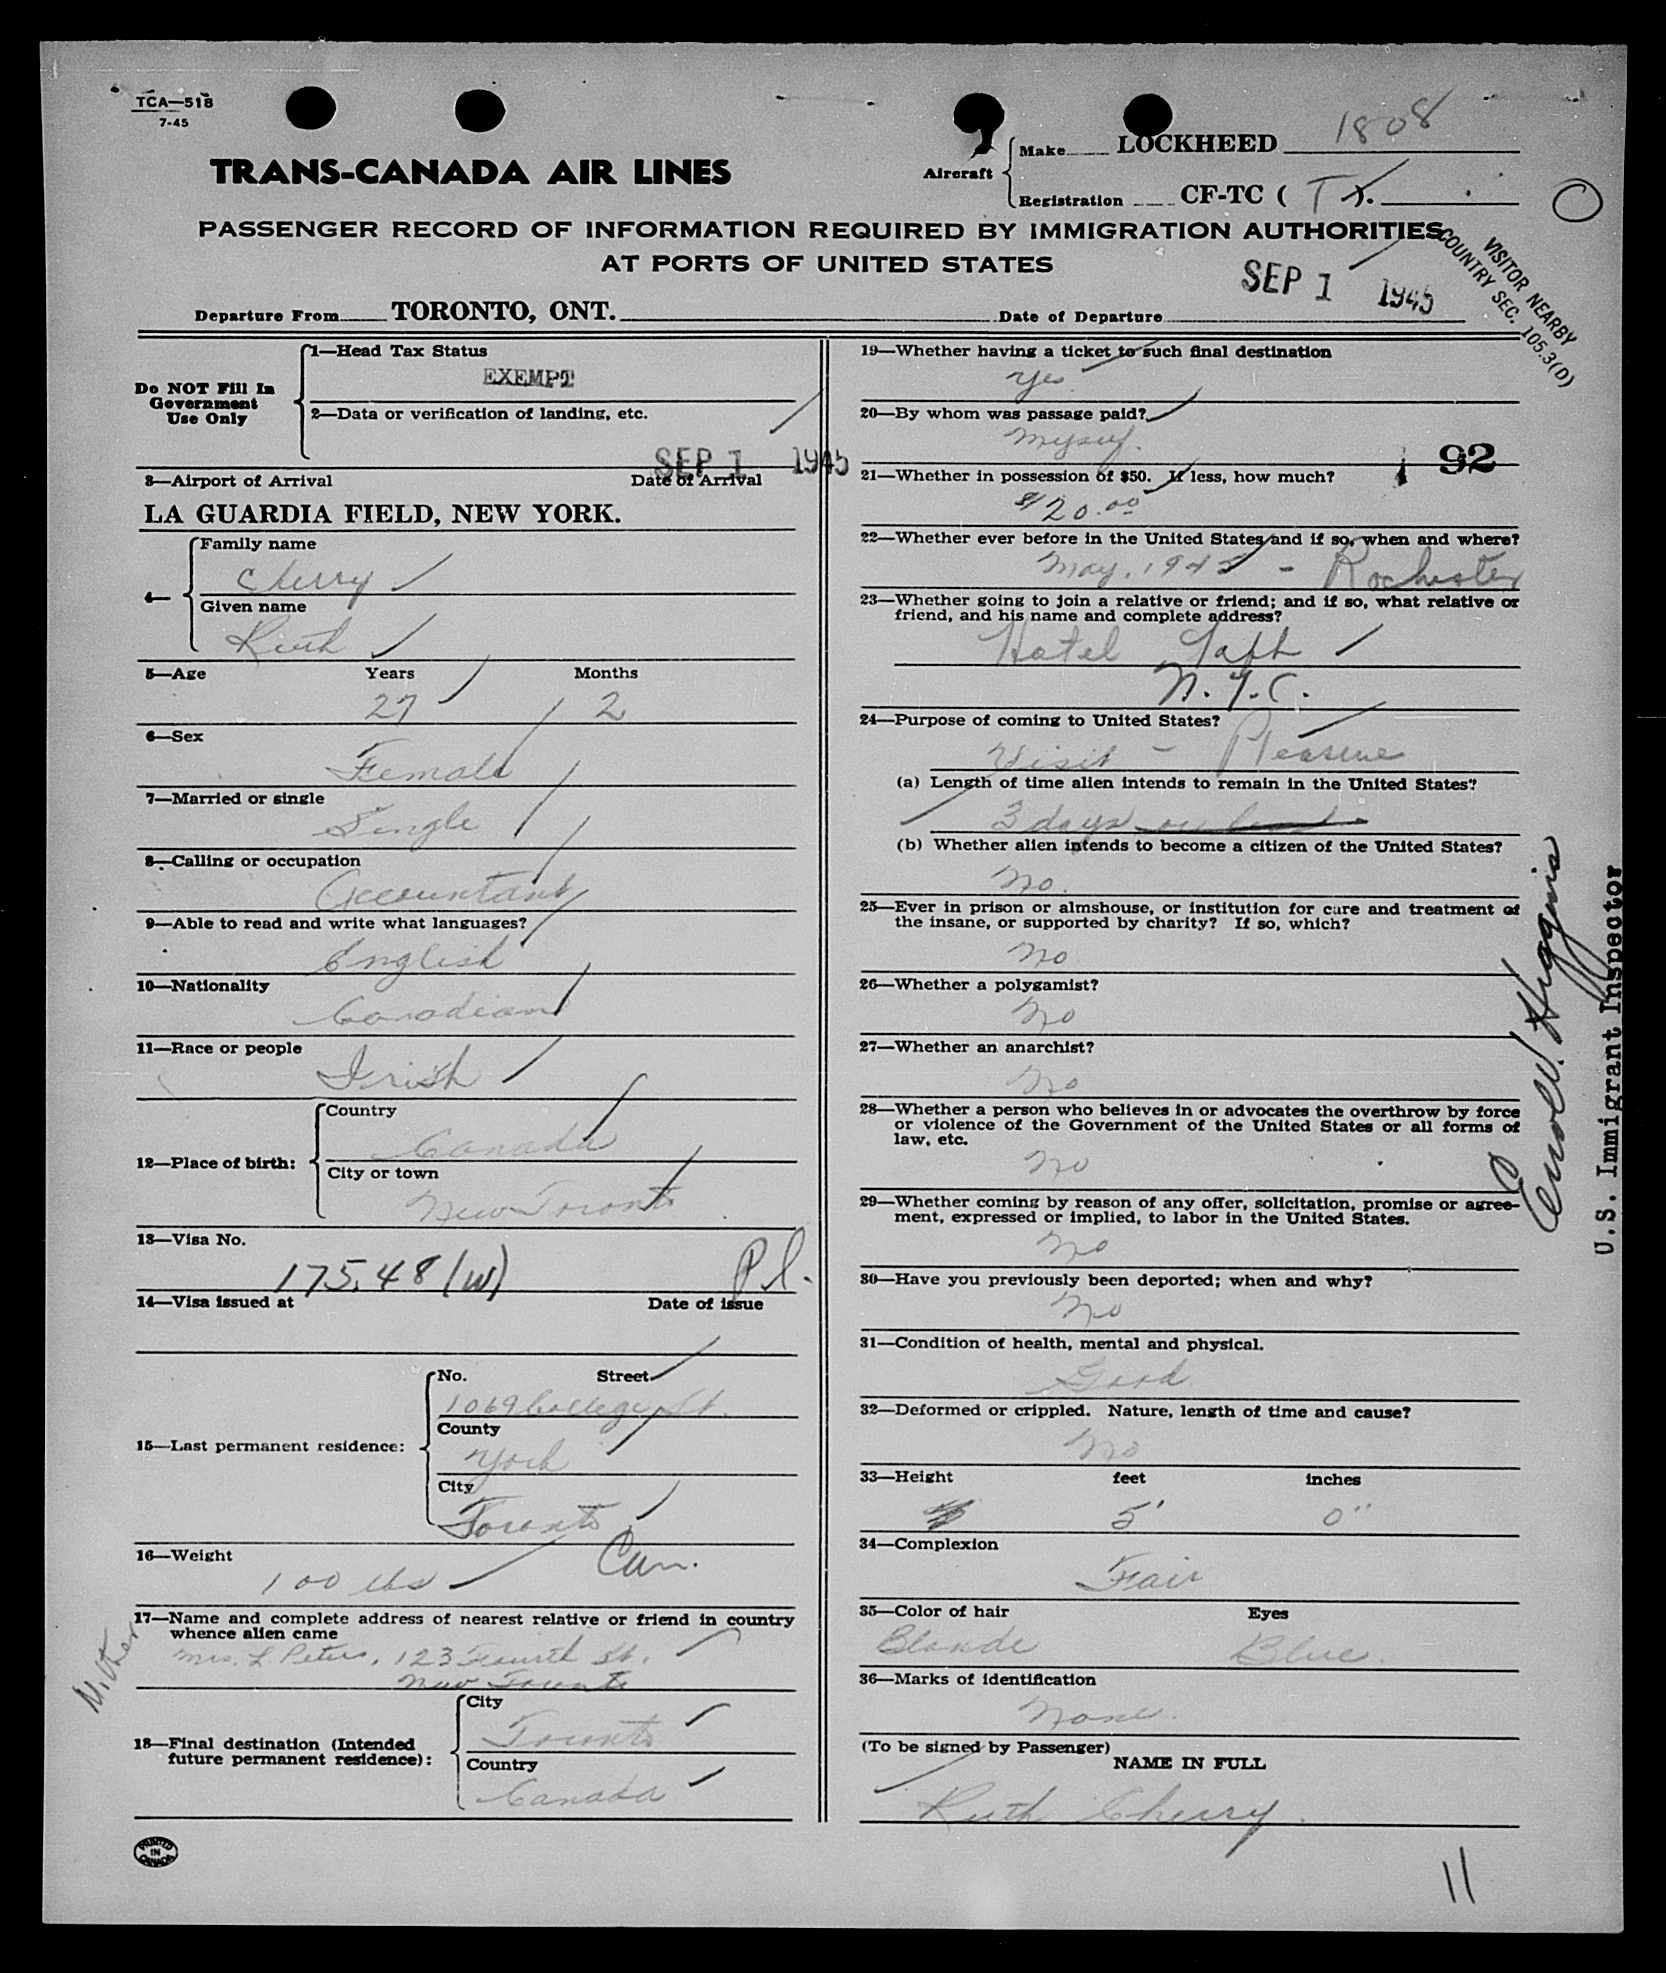 TCA—518
7-45
TRANS-CANADA AIR LINES
Aircraft
Make LOCKHEED 1808
Registration CF-TC ( T ).
PASSENGER RECORD OF INFORMATION REQUIRED BY IMMIGRATION AUTHORITIES
AT PORTS OF UNITED STATES
VISITOR NEARBY
COUNTRY SEC. 105.3(D)
SEP 1 1945
Departure From TORONTO, ONT. Date of Departure
Do NOT Fill In
Government
Use Only
1—Head Tax Status
EXEMPT
2—Data or verification of landing, etc.
SEP 1 1945
3—Airport of Arrival Date of Arrival
LA GUARDIA FIELD, NEW YORK.
4—
Family name
Cherry
Given name
Ruth
5—Age Years Months
27 2
6—Sex
Female
7—Married or single
Single
8—Calling or occupation
Accountant
9—Able to read and write what languages?
English
10—Nationality
Canadian
11—Race or people
Irish
12—Place of birth:
Country
Canada
City or town
New Toronto
13—Visa No.
175,48 (W) P.l.
14—Visa issued at Date of issue
15—Last permanent residence:
No. Street
1069 College St.
County
York
City
Toronto
Can.
16—Weight
100 lbs
17—Name and complete address of nearest relative or friend in country
whence alien came
Mother
Mrs. L Peters, 123 Fourth St.
New Toronto
18—Final destination (Intended
future permanent residence):
City
Toronto
Country
Canada
PRINTED
IN
CANADA
19—Whether having a ticket to such final destination
Yes
20—By whom was passage paid?
Myself.
92
21—Whether in possession of $50. If less, how much?
$120.00
22—Whether ever before in the United States and if so, when and where?
May, 1945 - Rochester
23—Whether going to join a relative or friend; and if so, what relative or
friend, and his name and complete address?
Hotel Taft
N.Y.C.
24—Purpose of coming to United States?
Visit - Pleasure
(a) Length of time alien intends to remain in the United States?
3 days
(b) Whether alien intends to become a citizen of the United States?
No.
25—Ever in prison or almshouse, or institution for care and treatment of
the insane, or supported by charity? If so, which?
No
26—Whether a polygamist?
No
27—Whether an anarchist?
No
28—Whether a person who believes in or advocates the overthrow by force
or violence of the Government of the United States or all forms of
law, etc.
No
29—Whether coming by reason of any offer, solicitation, promise or agree-
ment, expressed or implied, to labor in the United States.
No
30—Have you previously been deported; when and why?
No
31—Condition of health, mental and physical.
Good
32—Deformed or crippled. Nature, length of time and cause?
No
33—Height feet inches
5' 0"
34—Complexion
Fair
35—Color of hair Eyes
Blonde Blue.
36—Marks of identification
None.
(To be signed by Passenger)
NAME IN FULL
Ruth Cherry.
Higgins
U.S. Immigrant Inspector
11